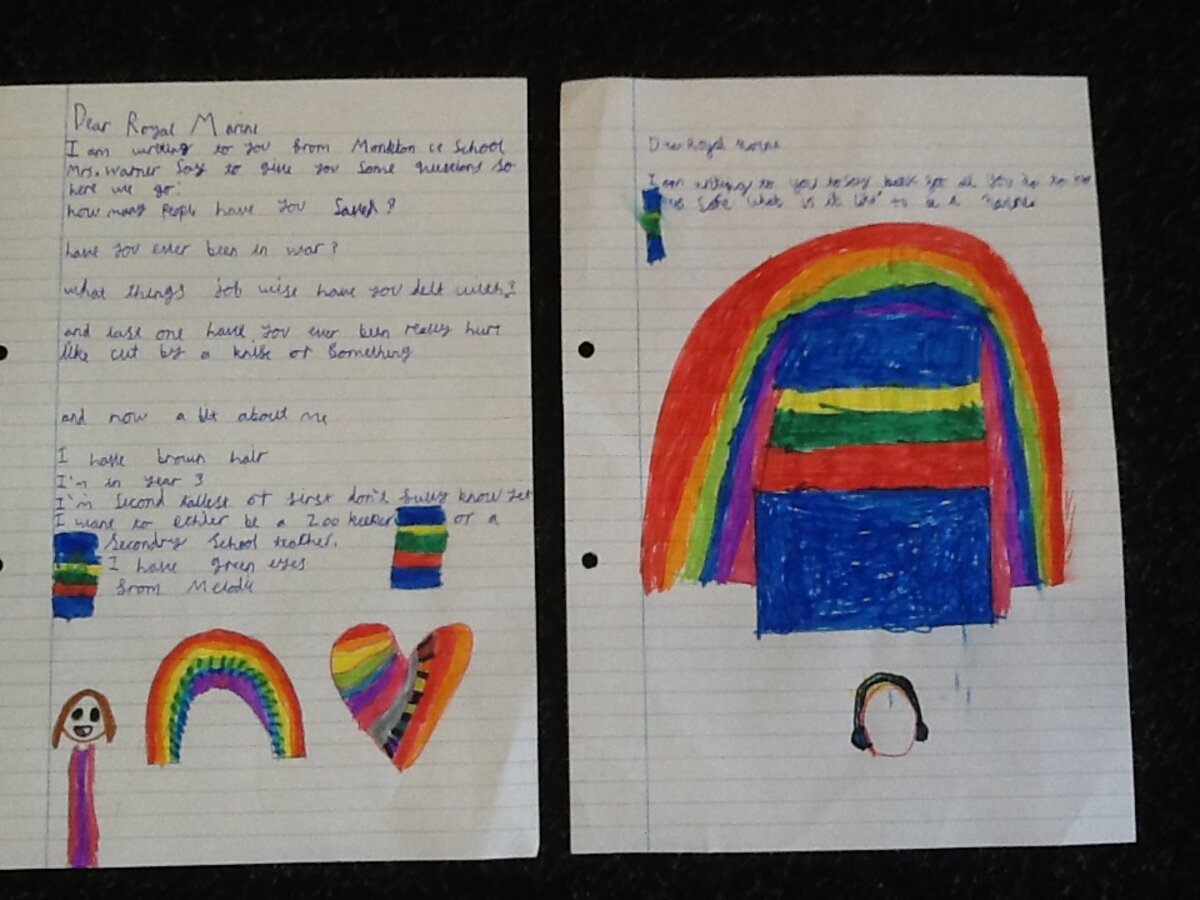 Dear Royal Marine
I am writing to you from Monkton ce School
Mrs. Warner Say to give you some questions so
here we go:
how many People have you saved?
have you ever been in war?
what things job wise have you delt with?
and last one have you ever been really hurt
like cut by a knife or Something
and now a bit about me
I have brown hair
I'm in year 3
I'm Second tallest or first don't fully know yet
I want to ethier be a Zoo keeper or a
Secondry School teather.
I have green eyes
from Melody
Dear Royal Marine
I am writing to you to say for all you do to
us safe what is it like to be a marine